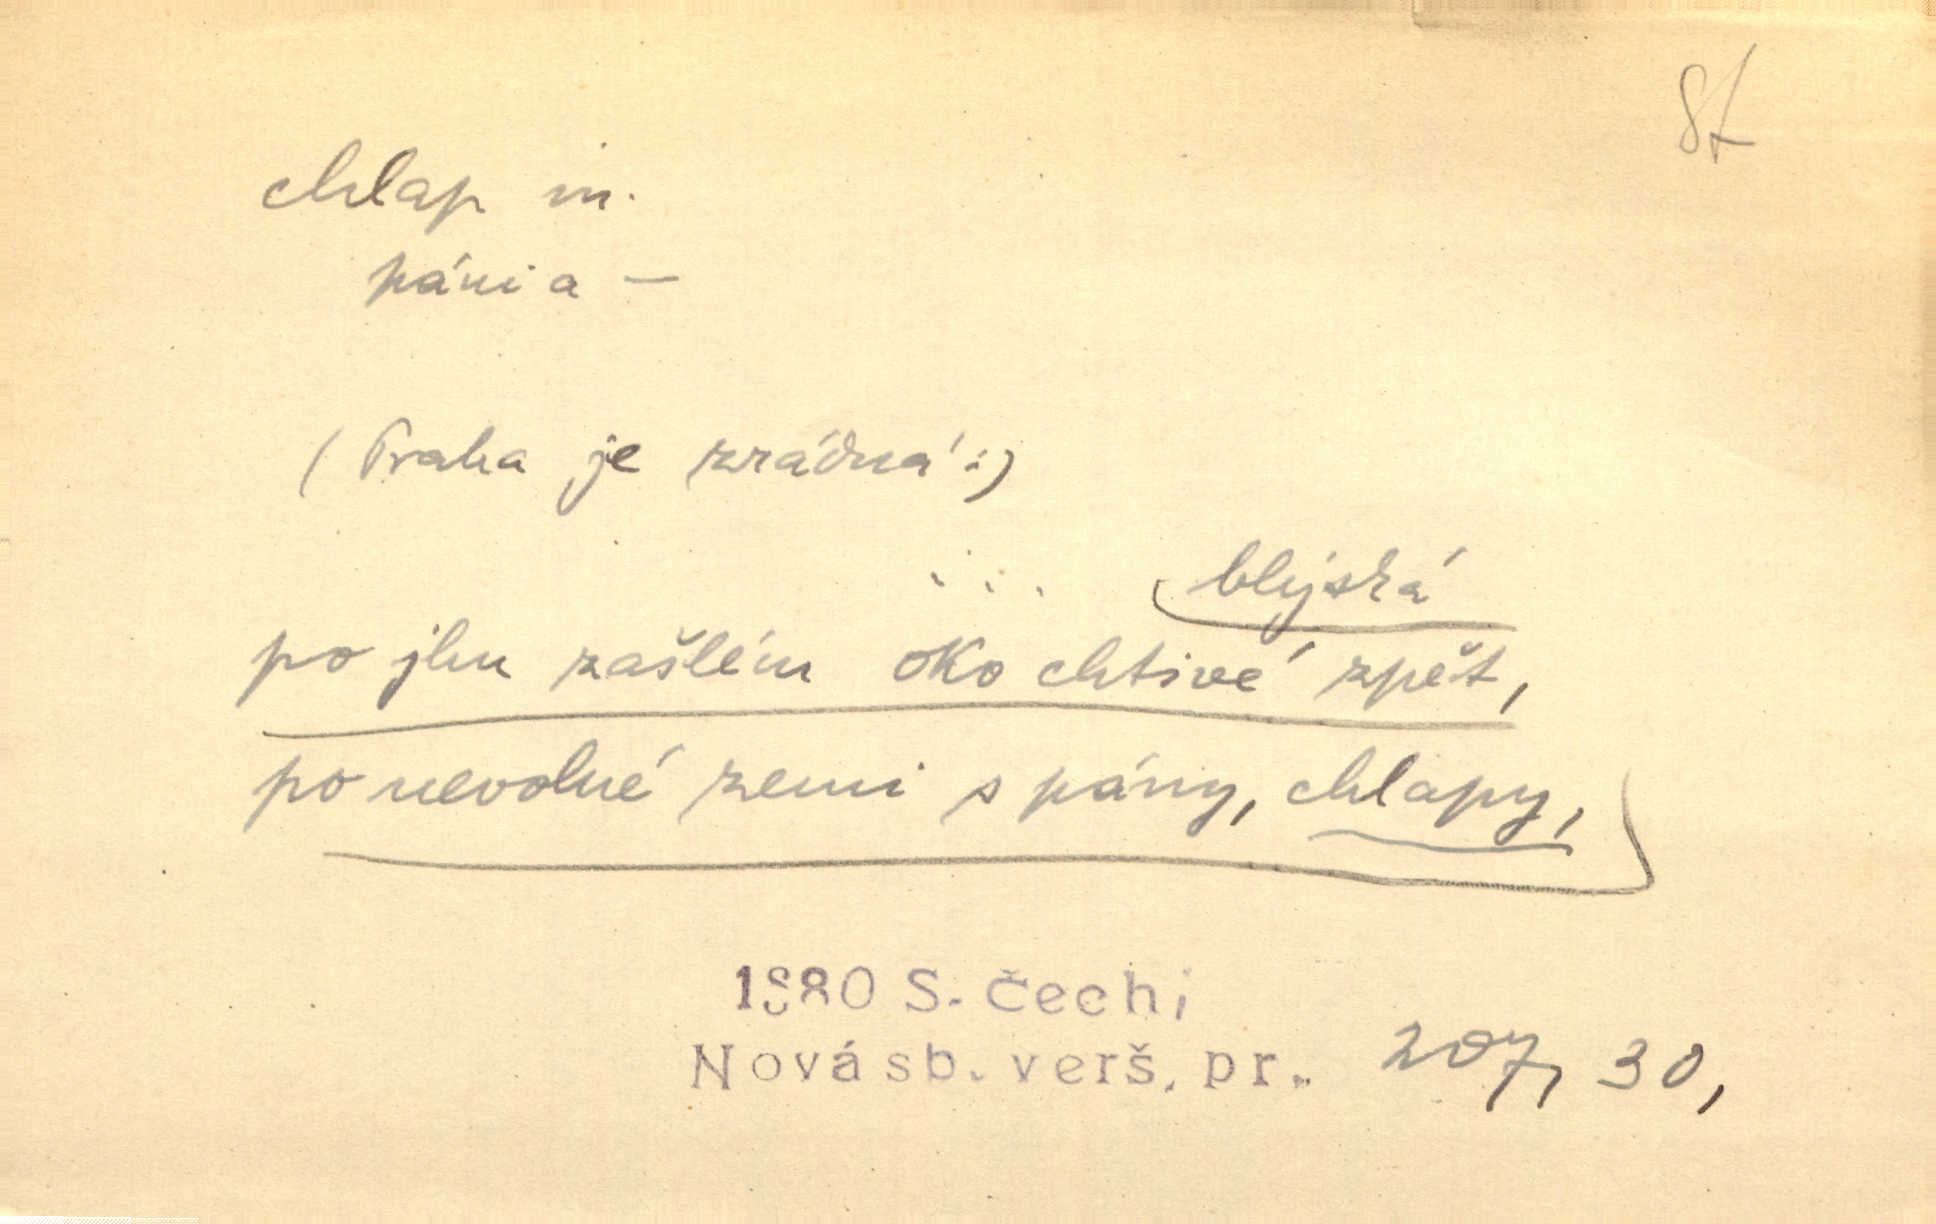 chlap m.
páni a —
(Praha je zrádná:)
... blýská
po jhu zašlém oko chtivé zpět,
po nevolné zemi s pány, chlapy,
1880 S. Čech;
Nová sb. verš. pr. 207, 30,